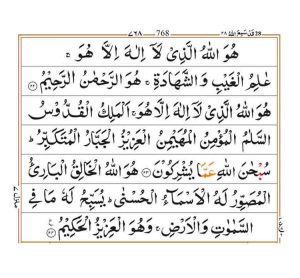 ٧٦٨ 768 قَدْ سَمِعَ اللّٰهُ ٢٨
هُوَ اللّٰهُ الَّذِىْ لَاۤ اِلٰهَ اِلَّا هُوَ ۚ
عٰلِمُ الْغَيْبِ وَالشَّهَادَةِ ۚ هُوَ الرَّحْمٰنُ الرَّحِيْمُ ﴿٢٢﴾
هُوَ اللّٰهُ الَّذِىْ لَاۤ اِلٰهَ اِلَّا هُوَ ۚ اَلْمَلِكُ الْقُدُّوْسُ
السَّلٰمُ الْمُؤْمِنُ الْمُهَيْمِنُ الْعَزِيْزُ الْجَبَّارُ الْمُتَكَبِّرُ ؕ
سُبْحٰنَ اللّٰهِ عَمَّا يُشْرِكُوْنَ ﴿٢٣﴾ هُوَ اللّٰهُ الْخَالِقُ الْبَارِئُ
الْمُصَوِّرُ لَهُ الْاَسْمَآءُ الْحُسْنٰى ؕ يُسَبِّحُ لَهٗ مَا فِى
السَّمٰوٰتِ وَالْاَرْضِ ۚ وَهُوَ الْعَزِيْزُ الْحَكِيْمُ ﴿٢٤﴾